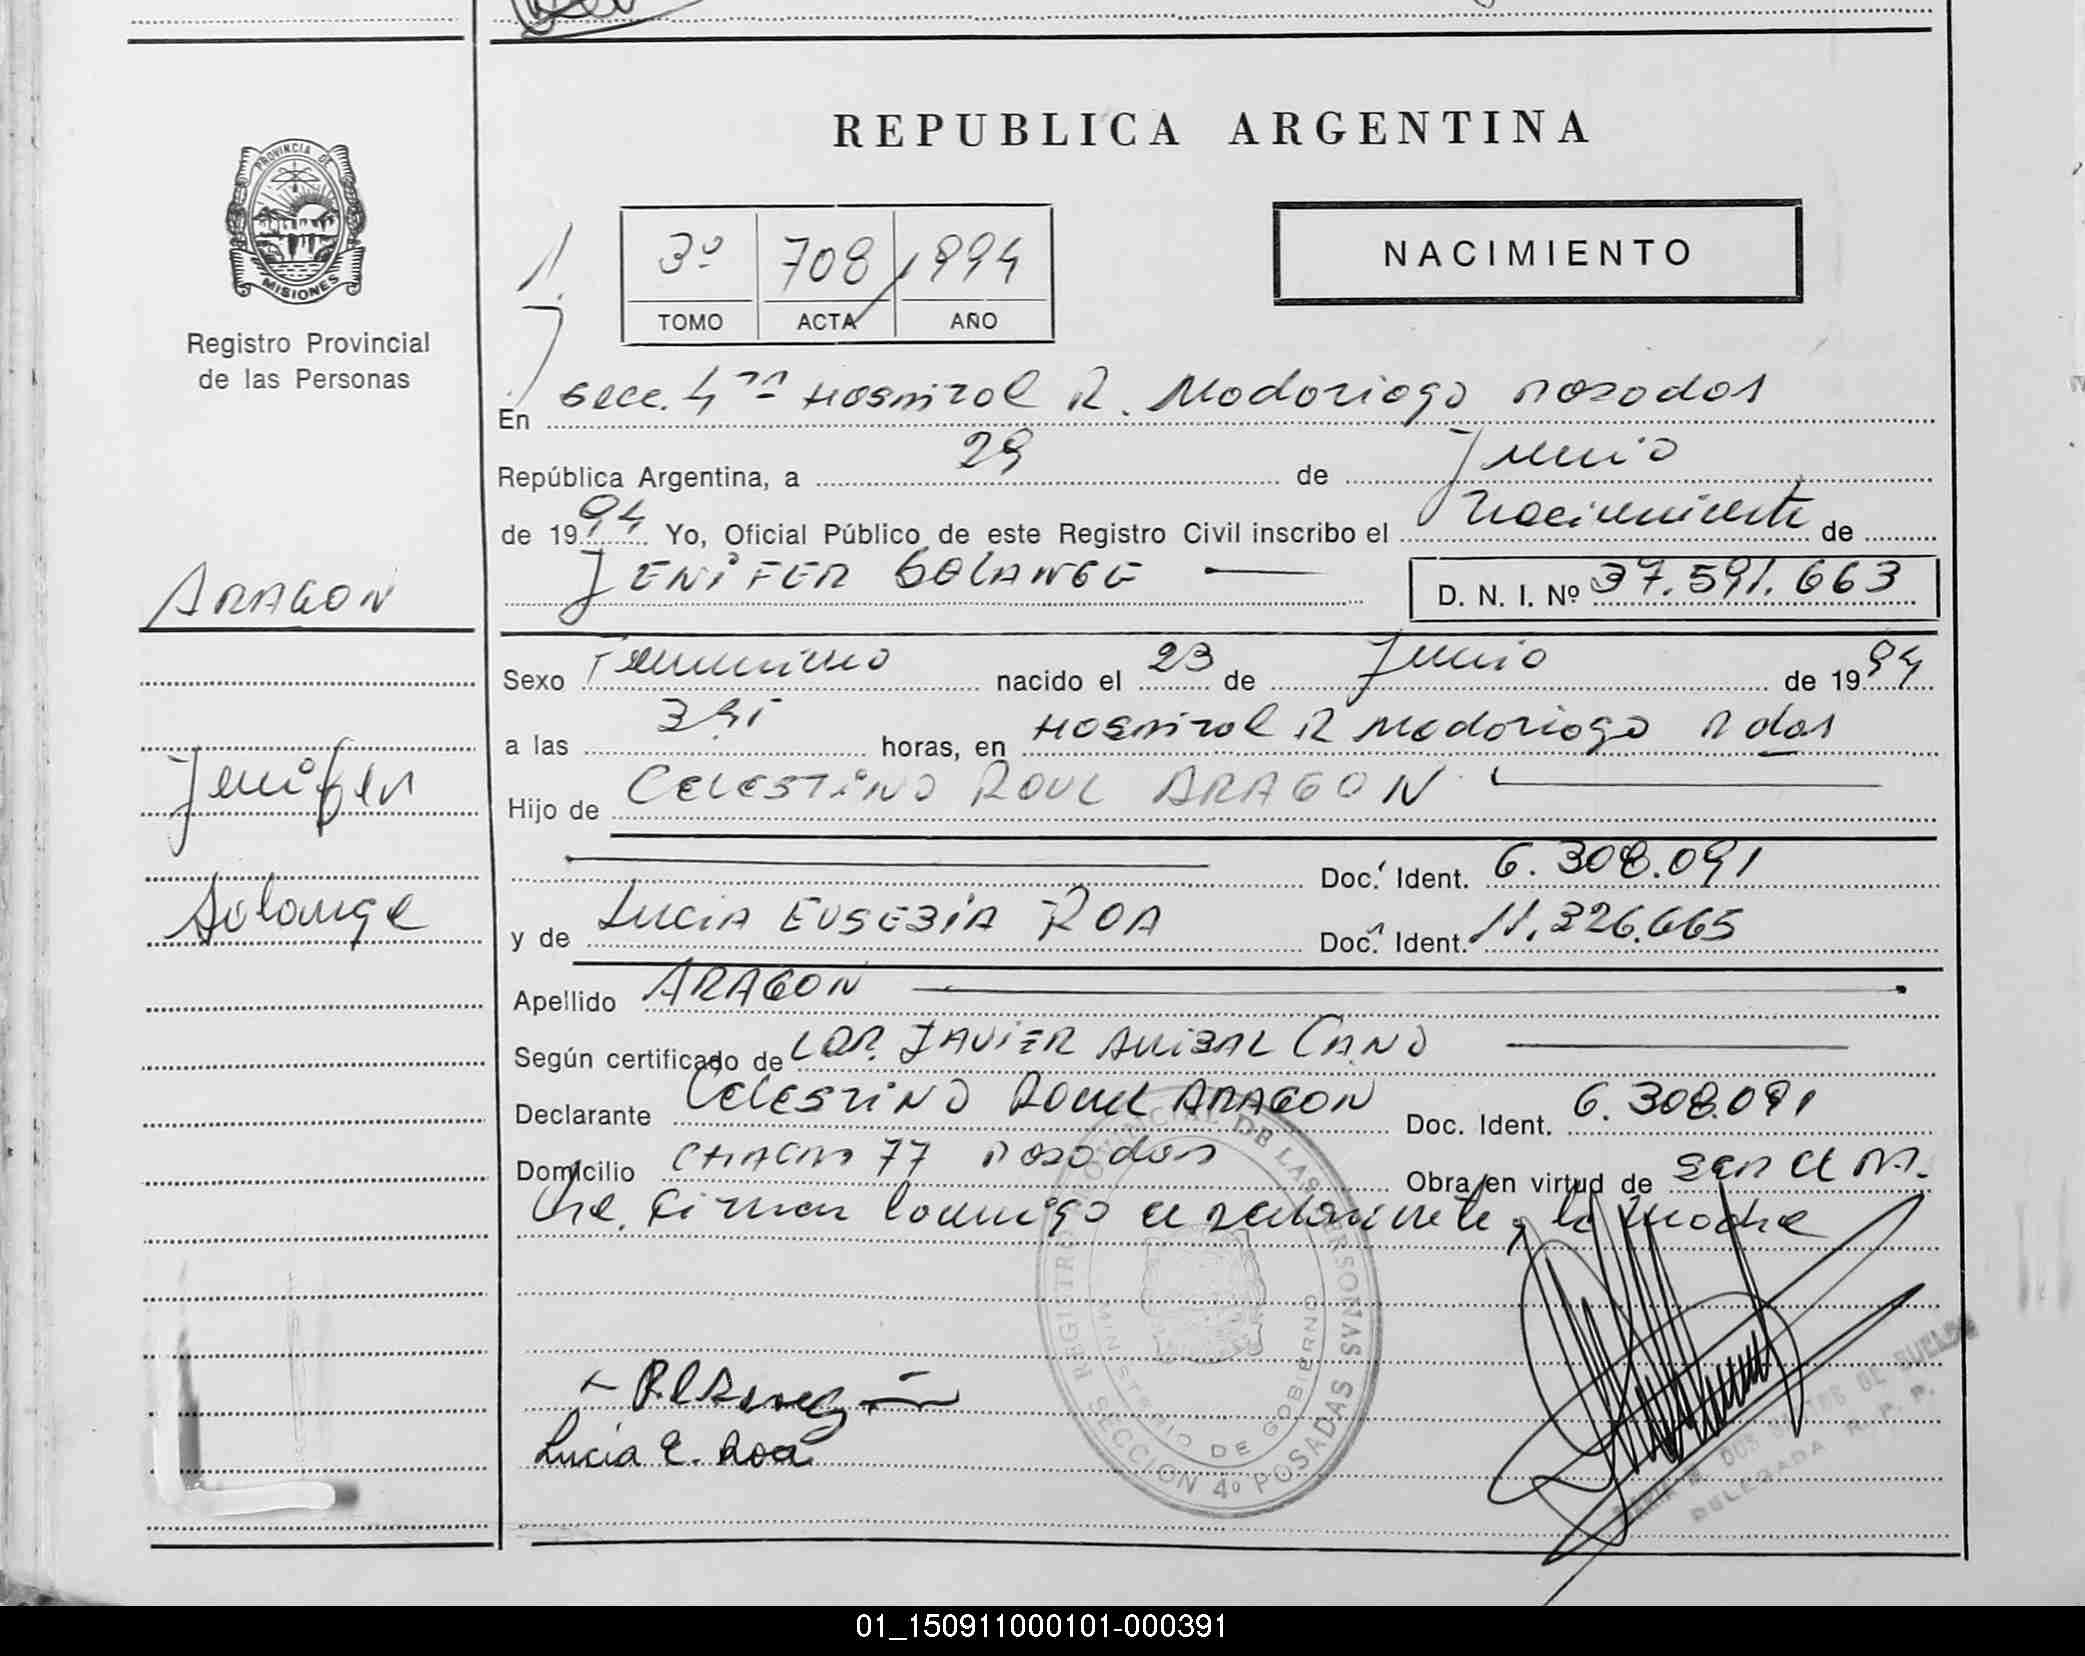 REPUBLICA ARGENTINA
PROVINCIA DE
MISIONES
Registro Provincial
de las Personas
NACIMIENTO
3º 708 1994
TOMO ACTA AÑO
En Secc. 4ta Hospital R. Madariaga Posadas
República Argentina, a 29 de Junio
de 1994 Yo, Oficial Público de este Registro Civil inscribo el Nacimiento de
JENIFER SOLANGE D. N. I. Nº 37.591.663
ARAGON
Sexo Femenino nacido el 23 de Junio de 1994
a las horas, en Hospital R Madariaga Pdas
Jenifer
Hijo de CELESTINO RAUL ARAGON
Doc. Ident. 6.308.091
Solange
y de LUCIA EUSEBIA ROA Doc. Ident. 11.326.665
Apellido ARAGON
Según certificado de JAVIER ANIBAL CANO
Declarante CELESTINO RAUL ARAGON Doc. Ident. 6.308.091
Domicilio CHACRA 77 Posadas Obra en virtud de ser el P.
Firman conmigo el declarante y la madre
REGISTRO PROVINCIAL DE LAS PERSONAS
MINISTERIO DE GOBIERNO
SECCION 4º POSADAS
Lucia E. Roa
DELEGADA R. P. P.
01_150911000101-000391